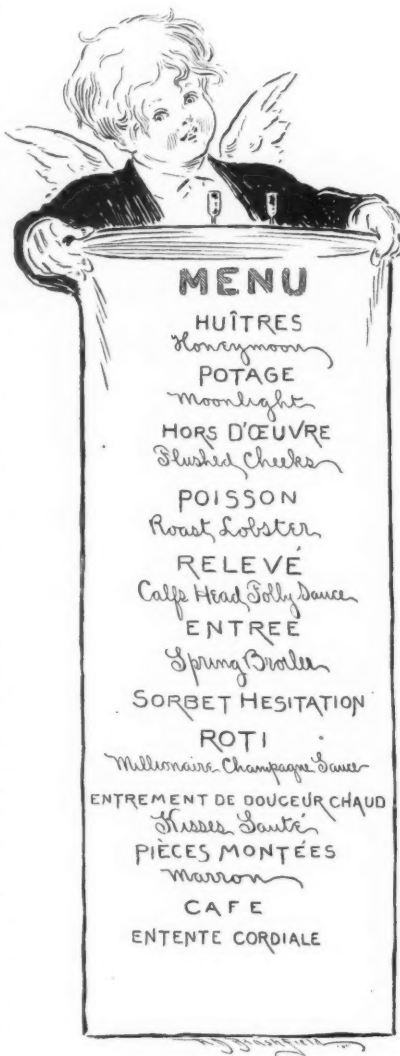 MENU
HUÎTRES
Honeymoon
POTAGE
Moonlight
HORS D'ŒUVRE
Flushed Cheeks
POISSON
Roast Lobster
RELEVÉ
Calfs Head Folly Sauce
ENTREE
Spring Broiler
SORBET HESITATION
ROTI
Millionaire Champagne Sauce
ENTREMENT DE DOUCEUR CHAUD
Kisses Sauté
PIÈCES MONTÉES
Marron
CAFE
ENTENTE CORDIALE